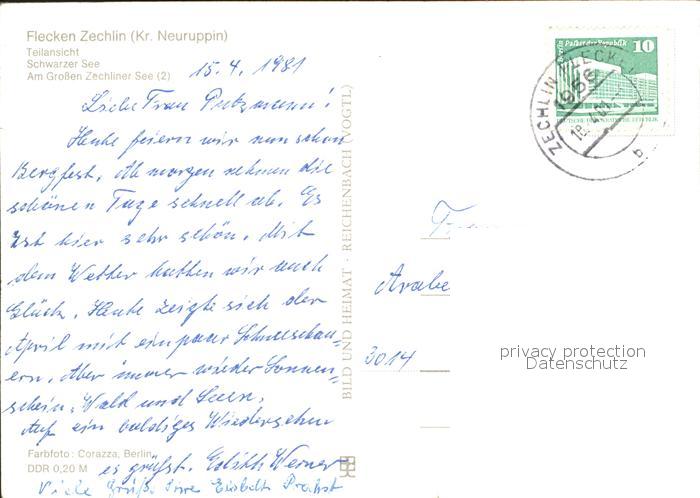 Flecken Zechlin (Kr. Neuruppin)
Teilansicht
Schwarzer See
Am Großen Zechliner See (2)
15.4.1981
Liebe Frau Putzmann!
Heute feiern wir nun schon
Bergfest. Ab morgen nehmen die
schönen Tage schnell ab. Es
ist hier sehr schön. Mit
dem Wetter hatten wir auch
Glück. Heute zeigte sich der
April mit ein paar Schneeschau-
ern. Aber immer wieder Sonnen-
schein, Wald und Seen.
Auf ein baldiges Wiedersehn
es grüßt. Edith Werner
Viele Grüße Ihre Probst
Farbfoto: Corazza, Berlin
DDR 0,20 M
BILD UND HEIMAT · REICHENBACH (VOGTL)
Palast der Republik 10
DEUTSCHE DEMOKRATISCHE REPUBLIK
ZECHLIN FLECKEN
1956
b
Frau
3014
privacy protection
Datenschutz